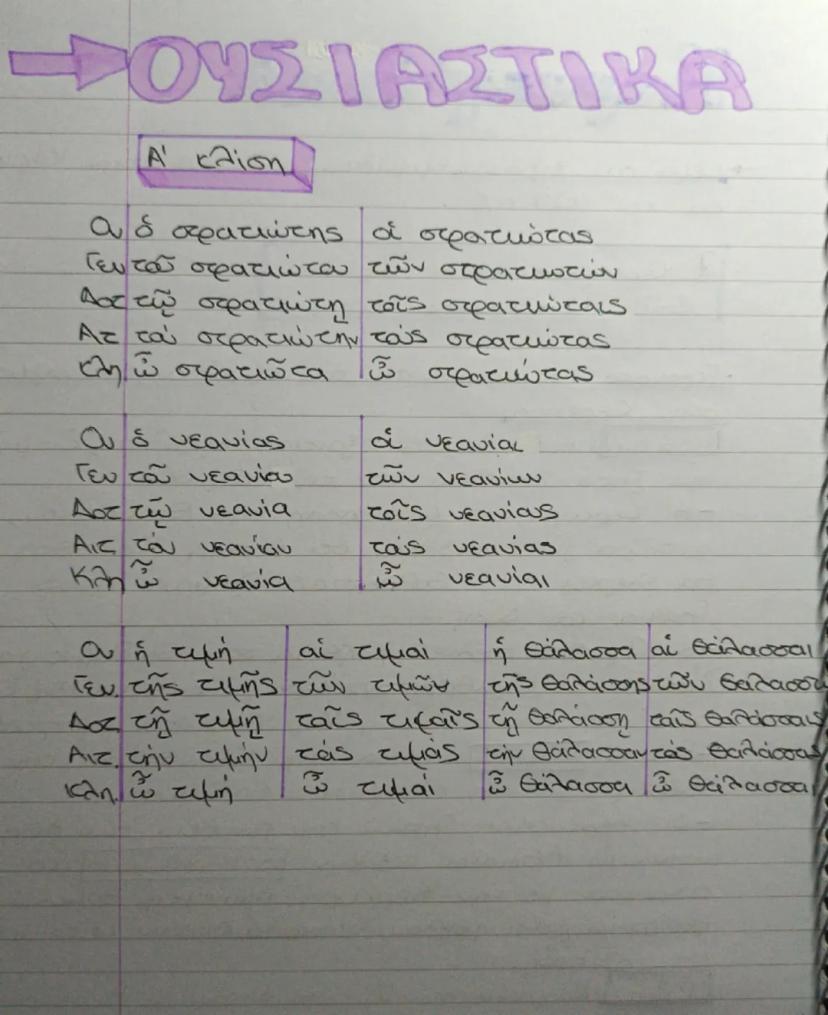 ΟΥΣΙΑΣΤΙΚΑ
Α' κλίση
Ον ὁ στρατιώτης οἱ στρατιώτας
Γεν τοῦ στρατιώτου τῶν στρατιωτῶν
Δοτ τῷ στρατιώτῃ τοῖς στρατιώταις
Αιτ τόν στρατιώτην τούς στρατιώτας
Κλη ὦ στρατιῶτα ὦ στρατιώτας
Ον ὁ νεανίας οἱ νεανίαι
Γεν τοῦ νεανίου τῶν νεανίων
Δοτ τῷ νεανία τοῖς νεανίαις
Αιτ τόν νεανίαν τούς νεανίας
Κλη ὦ νεανία ὦ νεανίαι
Ον ἡ τιμή αἱ τιμαί ἡ θάλασσα αἱ θάλασσαι
Γεν. τῆς τιμῆς τῶν τιμῶν τῆς θαλάσσης τῶν
Δοτ τῇ τιμῇ ταῖς τιμαῖς τῇ θαλάσσῃ ταῖς θαλάσσαις
Αιτ. τήν τιμήν τάς τιμάς τήν θάλασσαν τάς θαλάσσας
Κλη. ὦ τιμή ὦ τιμαί ὦ θάλασσα ὦ θάλασσαι